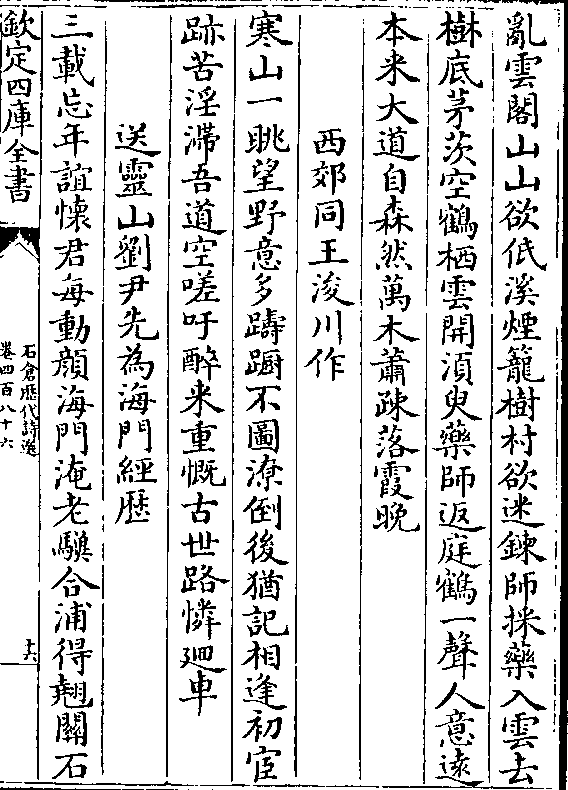 亂雲閣山山欲低溪煙籠樹村欲迷鍊師採藥入雲去
樹底茅茨空鶴栖雲開須臾藥師返庭鶴一聲人意遠
本来大道自森然萬木蕭疎落霞晚
西郊同王浚川作
寒山一眺望野意多躊躕不圖潦倒後猶記相逢初宦
跡苦淫滯吾道空嗟吁醉来重慨古世路憐廻車
送靈山劉尹先為海門經歷
三載忘年誼懷君每動顏海門淹老驥合浦得翹關石
欽定四庫全書
石倉歷代詩選
卷四百八十六
十六